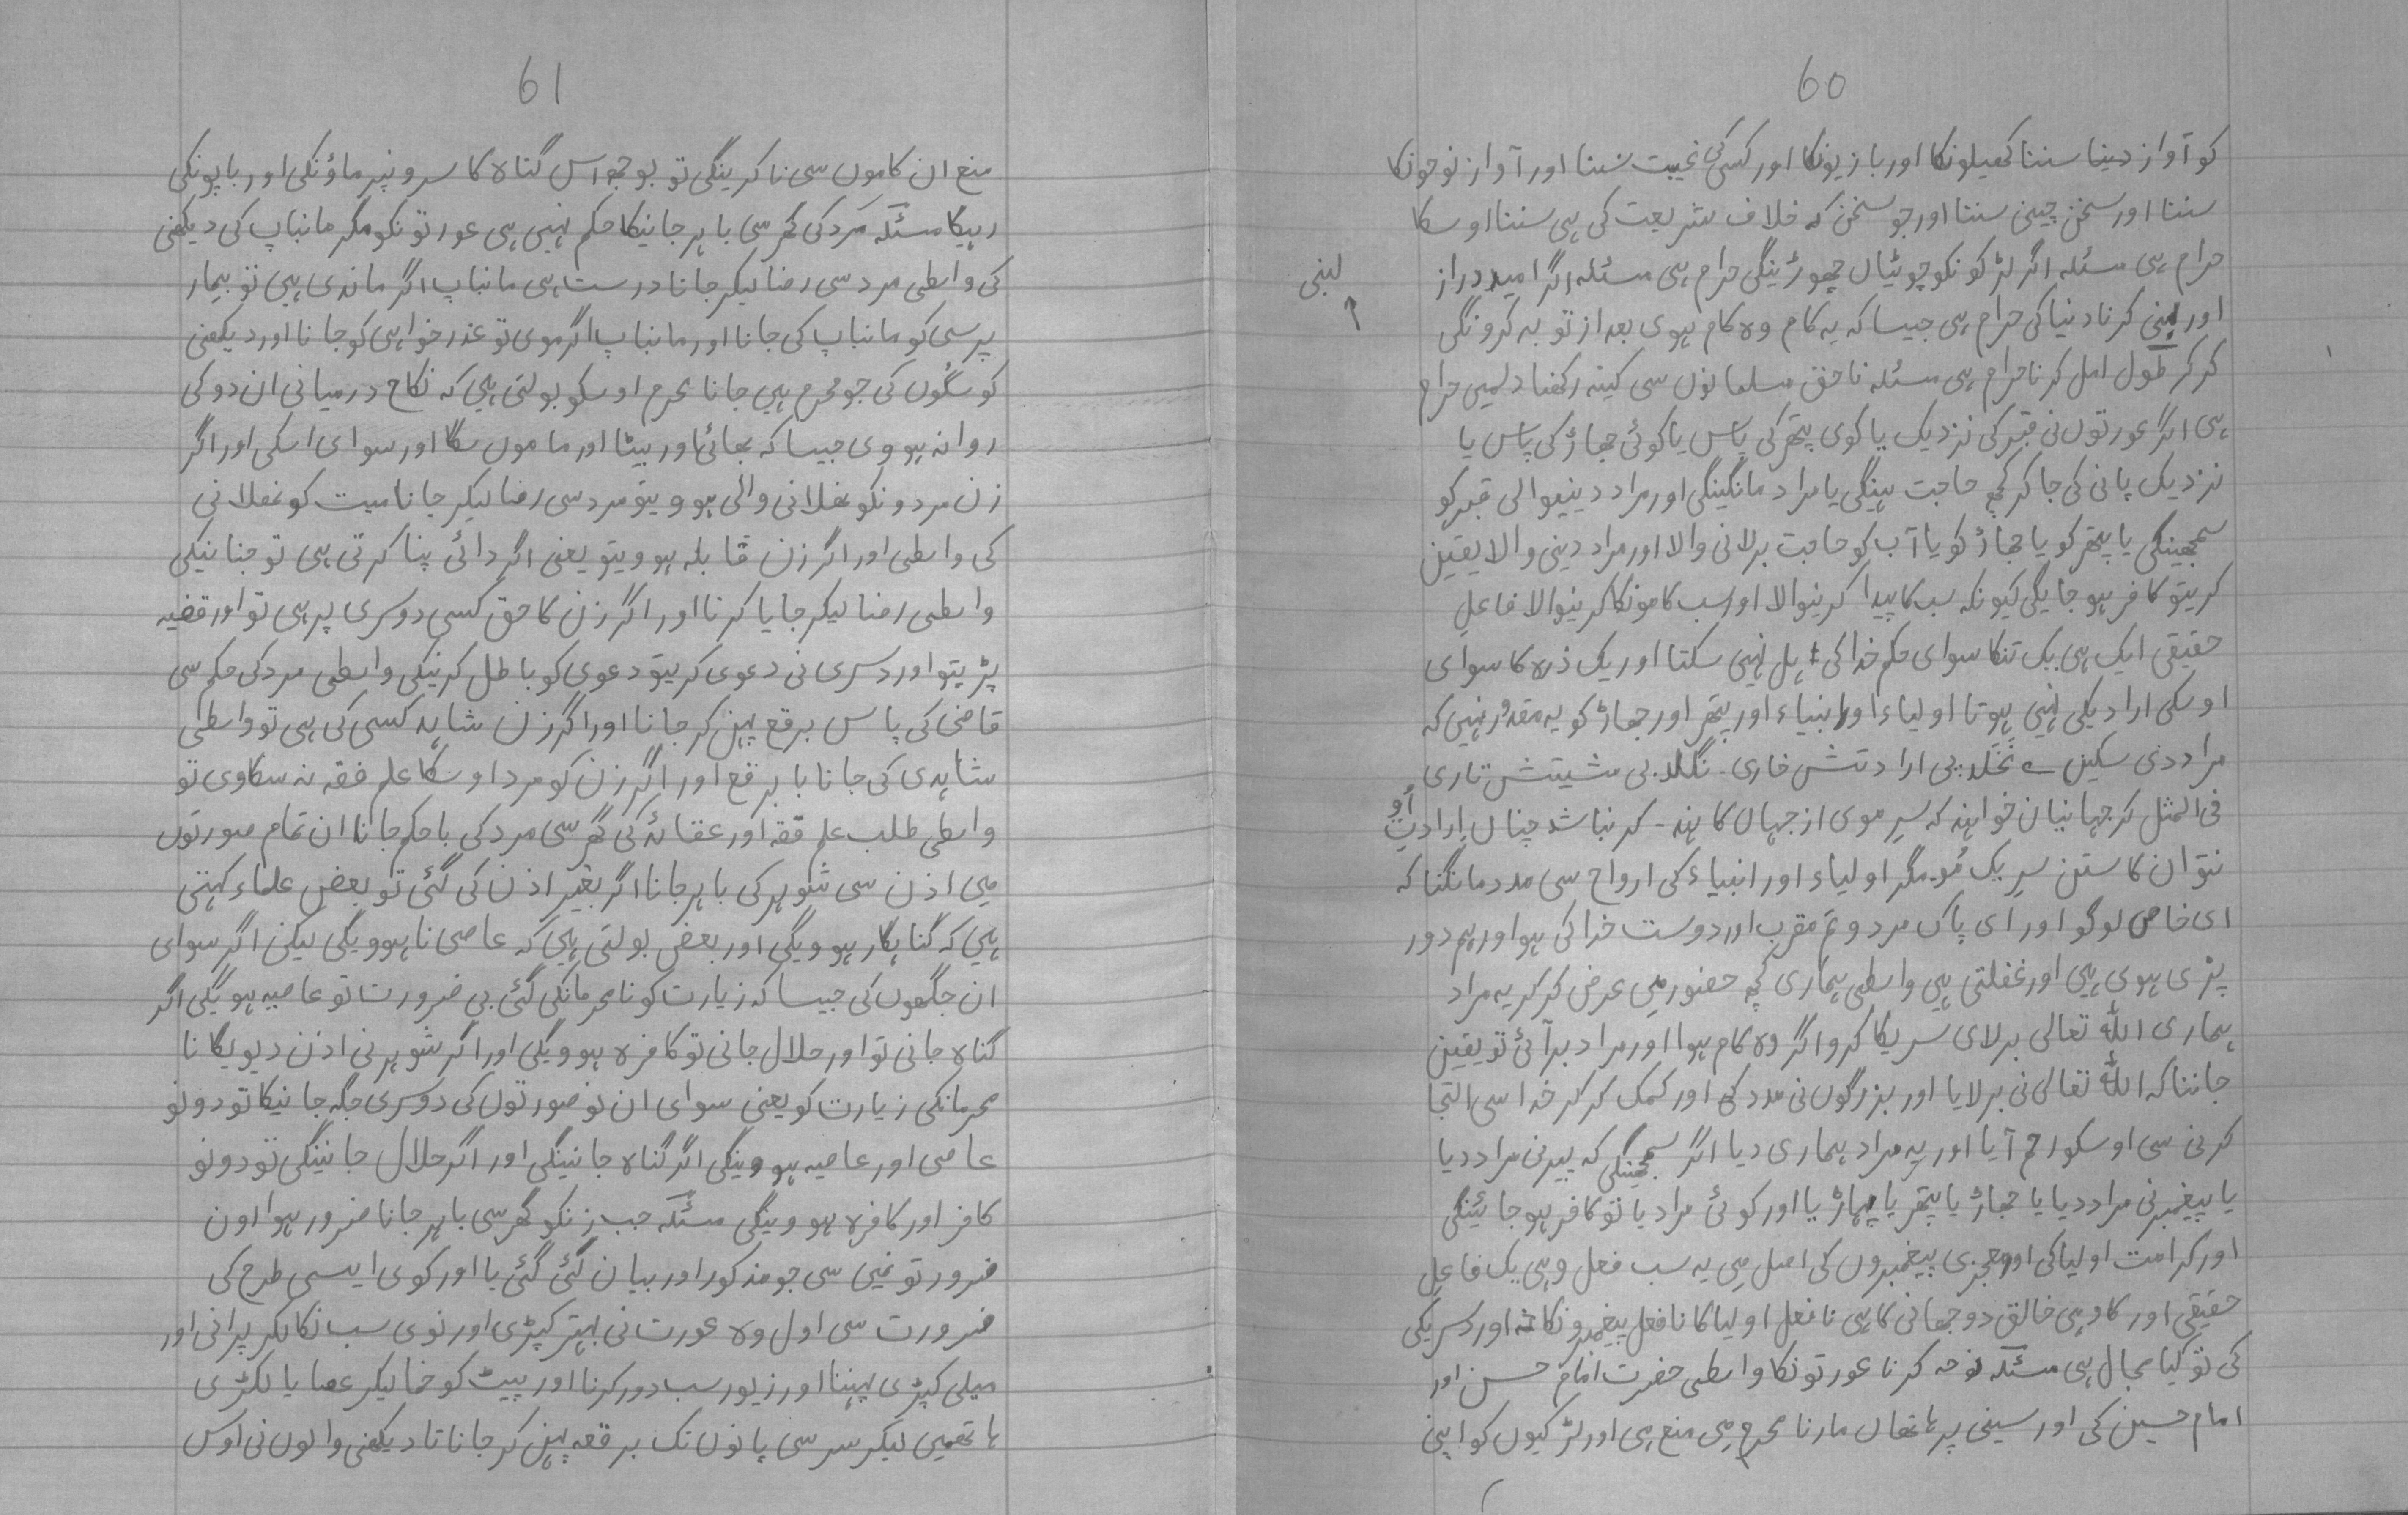 60
کو آواز دینا سننا کھیلونکا اور بازیونکا اور کسی کی غیبت سننا اور آواز نوحونکا
سننا اور سخن چینی سننا اور جو سخن کہ خلاف شریعت کی ہی سننا اوسکا
حرام ہی مسئلہ اگر لڑکونکو چوٹیاں چھوڑینگی حرام ہی مسئلہ اگر امید دراز
لبنی
اور لبنی کرنا دنیا کی حرام ہی جیسا کہ یہ کام وہ کام ہوی بعد از توبہ کرونگی
کر کر طول امل کرنا حرام ہی مسئلہ ناحق مسلمانوں سی کینہ رکھنا دلمیں حرام
ہی اگر عورتوں نی قبر کی نزدیک یا کوی پتھر کی پاس یا کوئی جھاڑ کی پاس یا
نزدیک پانی کی جا کر کچھ حاجت ہینگی یا مراد مانگینگی اور مراد دینیوالی قبر کو
سمجھینگی یا پتھر کو یا جھاڑ کو یا آب کو حاجت برلانی والا اور مراد دینی والا یقین
کریتو کافر ہو جایگی کیونکہ سب کا پیدا کرنیوالا اور سب کامونکا کرنیوالا فاعل
حقیقی ایک ہی یک تنکا سوای حکم خدا کی ہل نہیں سکتا اور یک ذرہ کا سوای
اوسکی ارادیکی نہیں ہوتا اولیاء اور انبیاء اور پتھر اور جھاڑ کو یہ مقدور نہیں کہ
مراد دی سکیں ے نخلد بی ارادتش خاری۔ نگلد بی مشیتش تاری
فی المثل گر جہانیان خواہند کہ سر موی از جہاں کاہند۔ گر نباشد چناں ارادتِ اُو
نتوان کاستن سر یک مُو۔ مگر اولیاء اور انبیاء کی ارواح سی مدد مانگنا کہ
ای خاص لوگو اور ای پاک مردو تم مقرب اور دوست خدا کی ہو اور ہم دور
پڑی ہوی ہیں اور غفلتی ہیں واسطی ہماری کچھ حضور میں عرض کر کر یہ مراد
ہماری اللہ تعالی برلای سریکا کرو اگر وہ کام ہوا اور مراد برآئی تو یقین
جاننا کہ اللہ تعالی نی برلایا اور بزرگوں نی مدد کی اور کمک کر کر خدا سی التجا
کرنی سی اوسکو رحم آیا اور یہ مراد ہماری دیا اگر سمجھینگی کہ پیر نی مراد دیا
یا پیغمبر نی مراد دیا یا جھاڑ یا پتھر یا پہاڑ یا اور کوئی مراد یا تو کافر ہو جائینگی
اور کرامت اولیا کی اور معجزی پیغمبروں کی اصل میں یہ سب فعل وہی یک فاعل
حقیقی اور کا وہی خالق دو جہانی کا ہی نا فعل اولیا کا نا فعل پیغمبرونکا نہ اور دسریکی
کی تو کیا مجال ہی مسئلہ نوحہ کرنا عورتونکا واسطی حضرت امام حسن اور
امام حسین کی اور سینی پر ہاتھاں مارنا محرم میں منع ہی اور لڑکیوں کو اپنی
61
منع ان کاموں سی نا کرینگی تو بوجھ اس گناہ کا سرونپر ماؤنکی اور باپونکی
رہیگا مسئلہ مرد کی گھر سی باہر جانیکا حکم نہیں ہی عورتونکو مگر مانباپ کی دیکھنی
کی واسطی مرد سی رضا لیکر جانا درست ہی مانباپ اگر ماندی ہیں تو بیمار
پرسی کو مانباپ کی جانا اور مانباپ اگر موی تو عذر خواہی کو جانا اور دیکھنی
کو سگوں کی جو محرم ہیں جانا محرم اوسکو بولتی ہیں کہ نکاح درمیانی ان دو کی
روا نہ ہووی جیسا کہ بھائی اور بیٹا اور ماموں سگا اور سوای اسکی اور اگر
زن مردونکو نھلانی والی ہوویتو مرد سی رضا لیکر جانا میت کو نھلانی
کی واسطی اور اگر زن قابلہ ہوویتو یعنی اگر دائی پنا کرتی ہی تو جنانیکی
واسطی رضا لیکر جایا کرنا اور اگر زن کا حق کسی دوسری پر ہی تو اور قضیہ
پڑیتو اور دسری نی دعوی کریتو دعوی کو باطل کرنیکی واسطی مرد کی حکم سی
قاضی کی پاس برقع پہن کر جانا اور اگر زن شاہد کسی کی ہی تو واسطی
شاہدی کی جانا با برقع اور اگر زن کو مرد اوسکا علم فقہ نہ سکاوی تو
واسطی طلب علم فقہ اور عقائد کی گھر سی مرد کی با حکم جانا ان تمام صورتوں
میں اذن سی شوہر کی باہر جانا اگر بغیر اذن کی گئی تو بعض علماء کہتی
ہیں کہ گناہگار ہوویگی اور بعض بولتی ہیں کہ عاصی نا ہوویگی لیکن اگر سوای
ان جگھوں کی جیسا کہ زیارت کو نامحرمانکی گئی بی ضرورت تو عاصیہ ہویگی اگر
گناہ جانی تو اور حلال جانی تو کافرہ ہوویگی اور اگر شوہر نی اذن دیویگا نا
محرمانکی زیارت کو یعنی سوای ان نو صورتوں کی دوسری جگہ جانیکا تو دونو
عاصی اور عاصیہ ہووینگی اگر گناہ جانینگی اور اگر حلال جانینگی تو دونو
کافر اور کافرہ ہووینگی مسئلہ جب زنکو گھر سی باہر جانا ضرور ہوا اون
ضرورتونمیں سی جو مذکور اور بیان گئی گئی یا اور کوی ایسی طرح کی
ضرورت سی اول وہ عورت نی بہتر کپڑی اور نوی سب نکالکر پرانی اور
میلی کپڑی پہننا اور زیور سب دور کرنا اور پیٹ کو خما لیکر عصا یا لکڑی
ہاتھمیں لیکر سر سی پانوں تک برقعہ پہن کر جانا تا دیکھنی والوں نی اوس